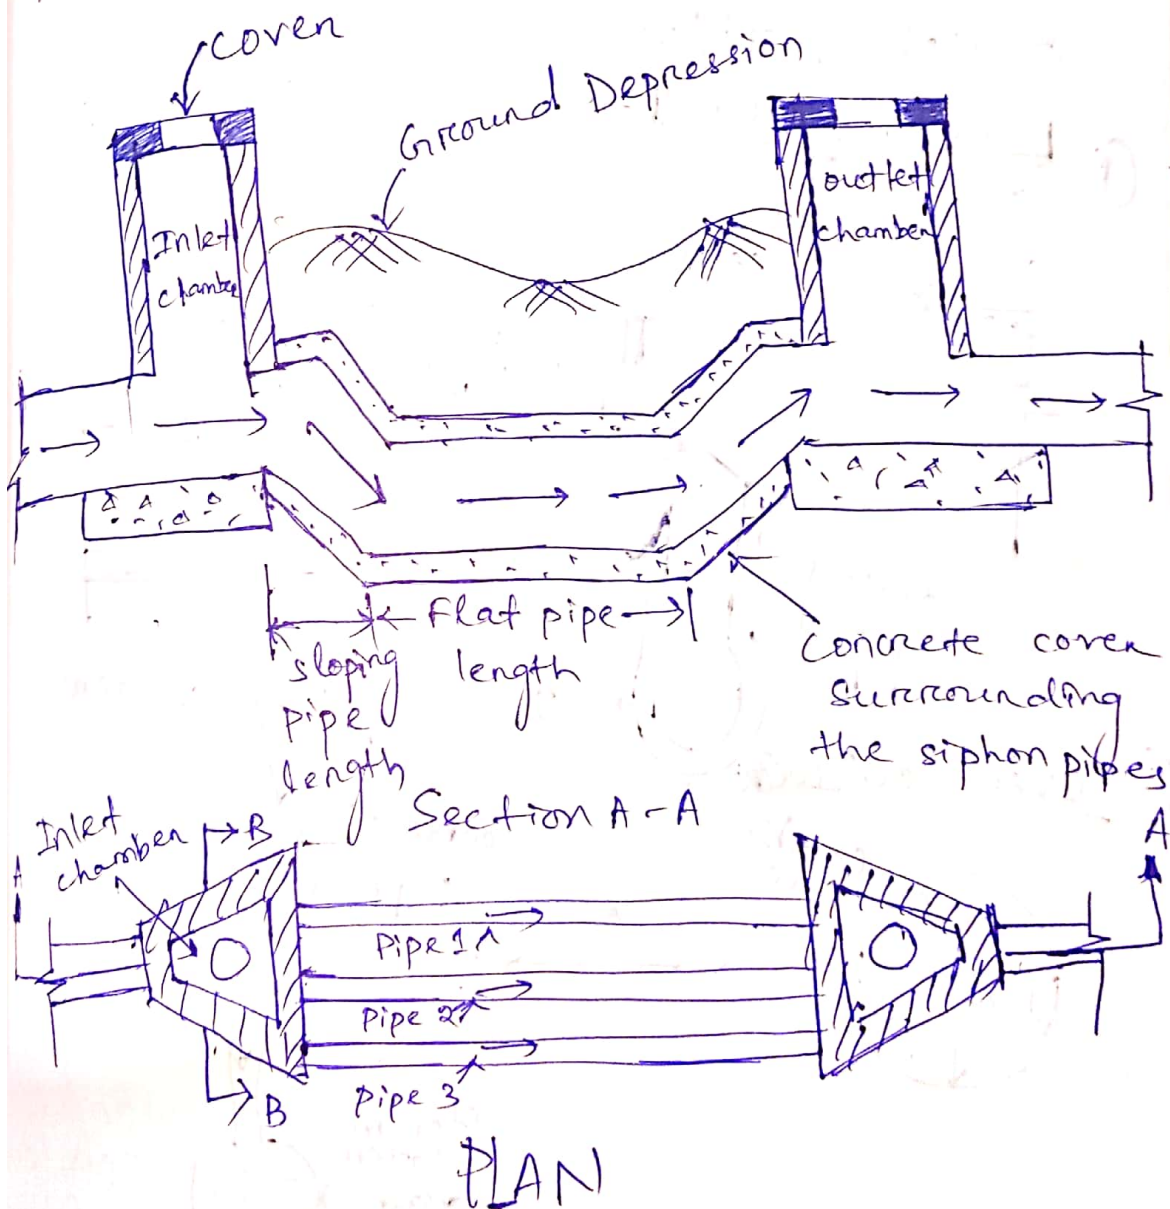 cover
Ground Depression
Inlet
chamber
outlet
chamber
Flat pipe
length
sloping
pipe
length
Concrete cover
surrounding
the siphon pipes
Section A-A
Inlet
chamber
B
A
A
Pipe 1
Pipe 2
Pipe 3
B
PLAN